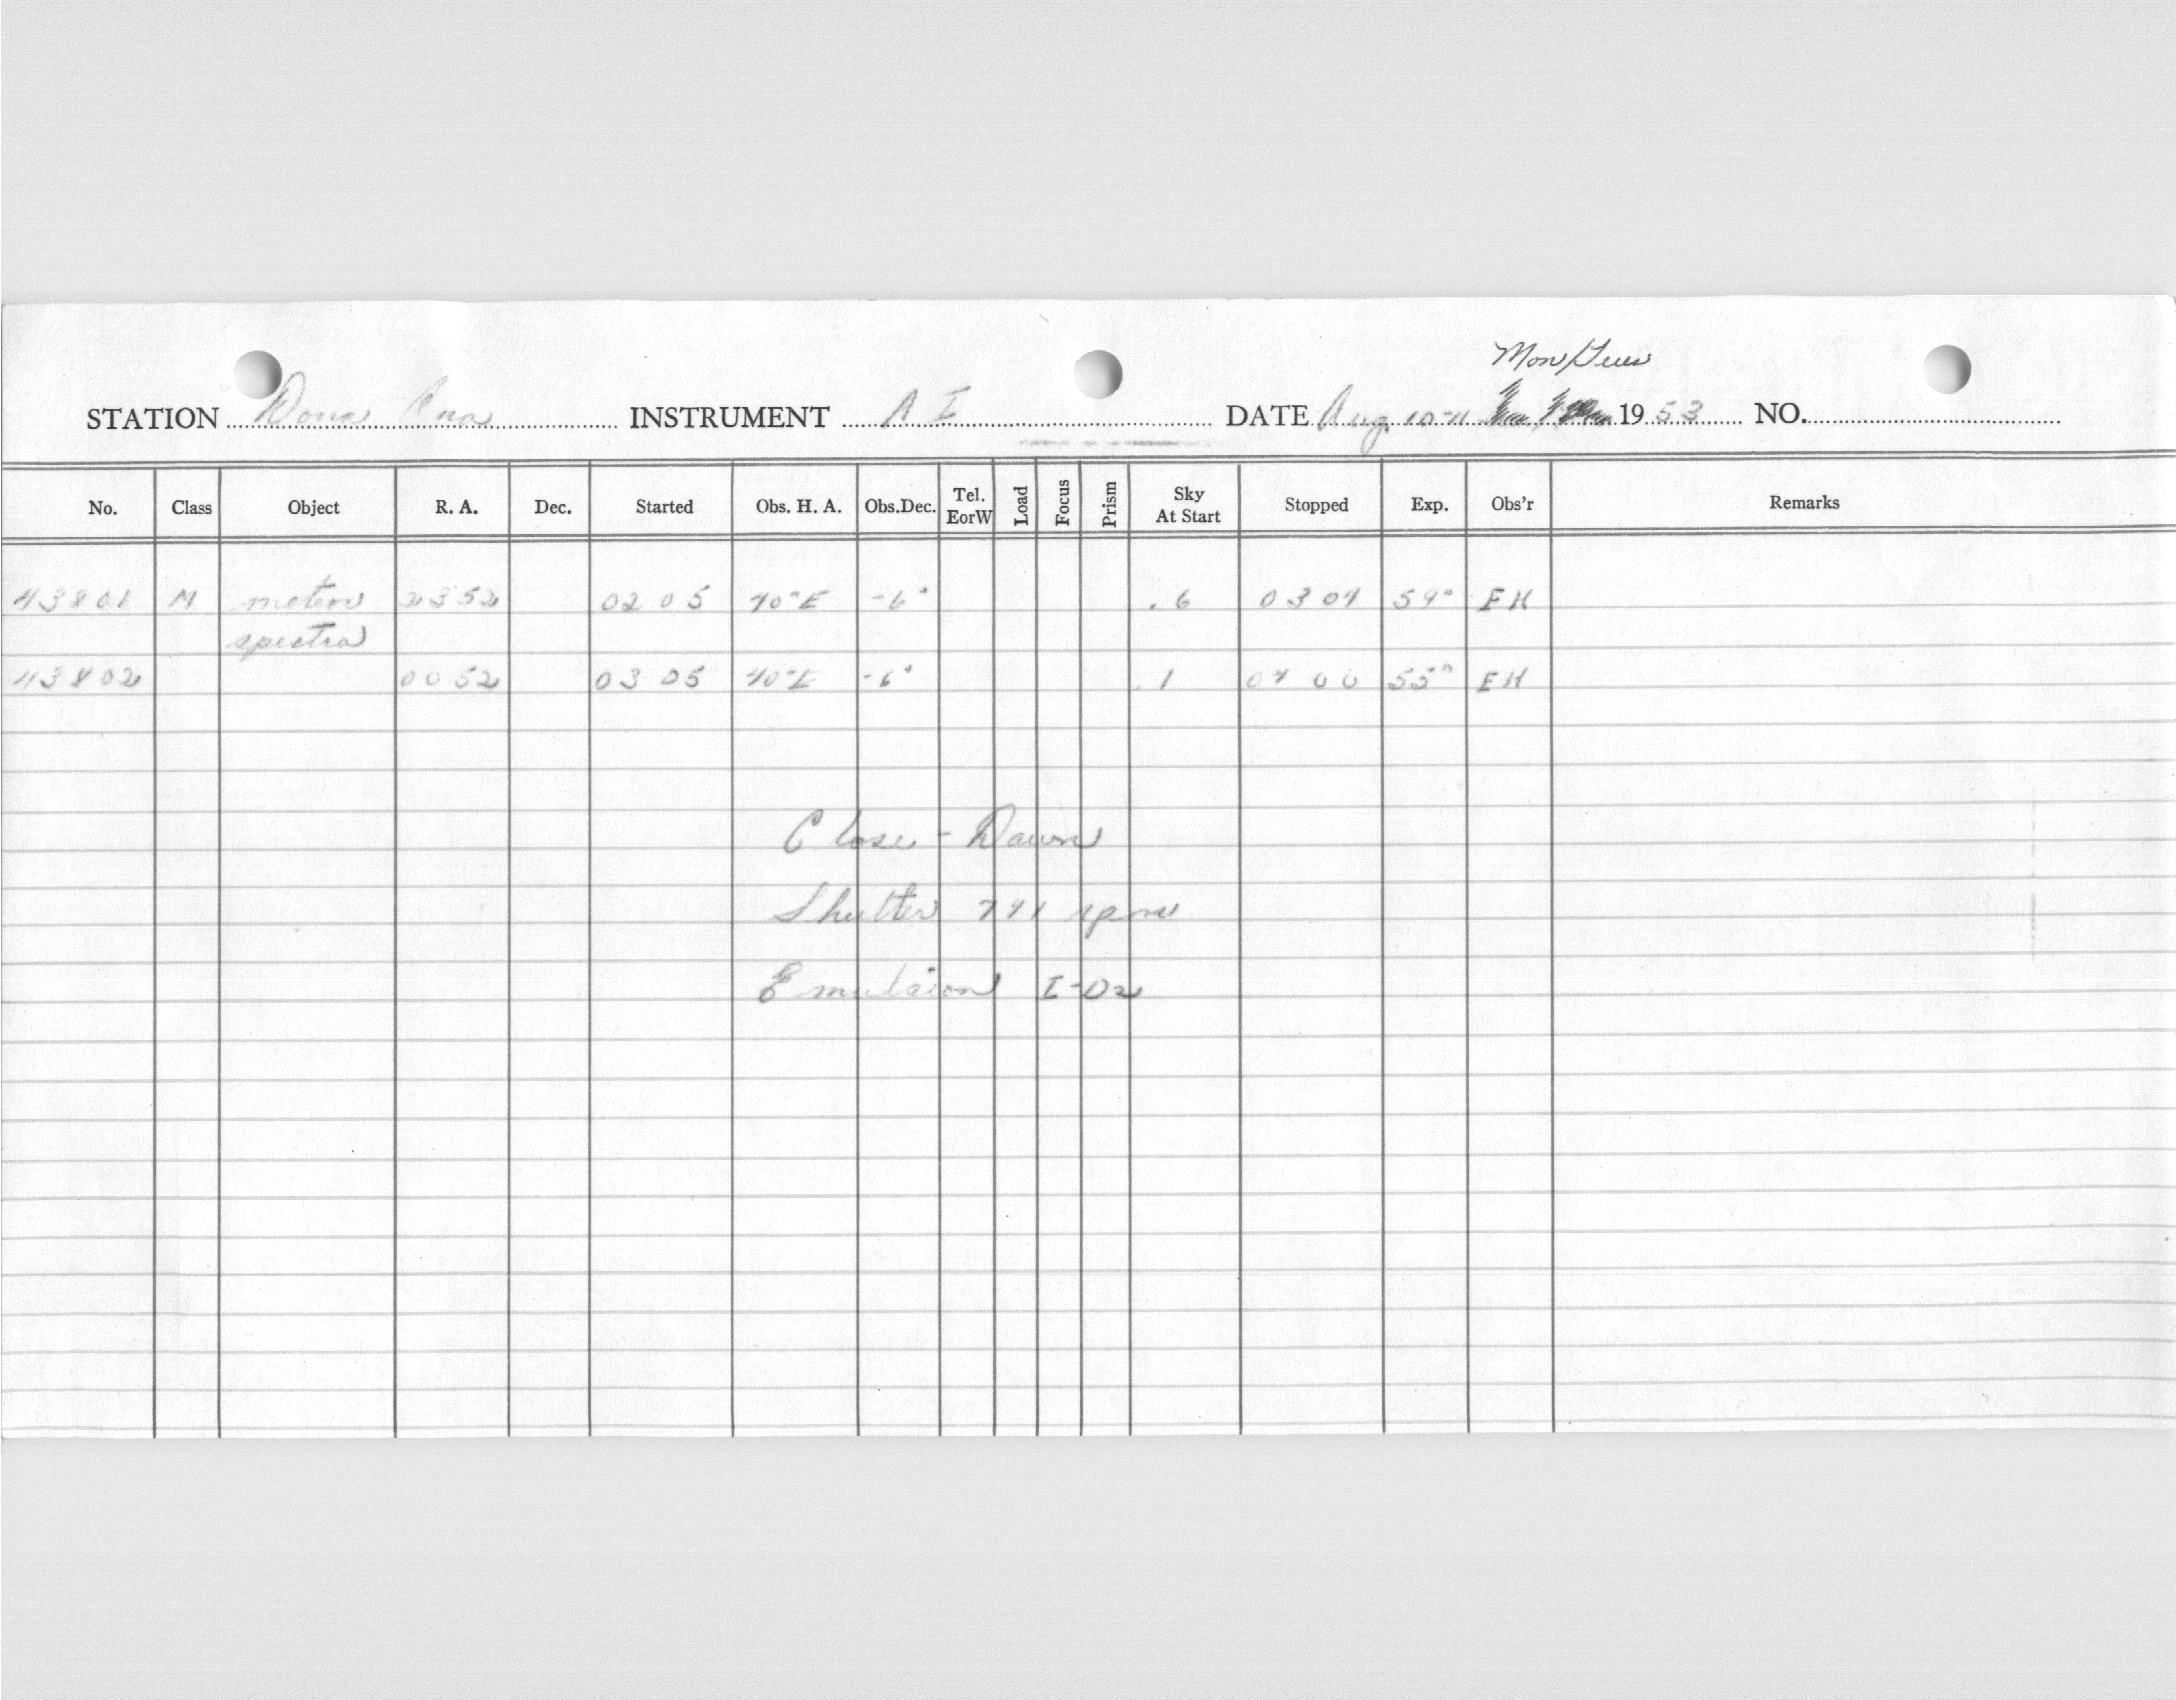 Mon/Tues
STATION Dona Ana INSTRUMENT AI DATE Aug 10-11 1953 NO.
No. Class Object R. A. Dec. Started Obs. H. A. Obs.Dec. Tel. EorW Load Focus Prism Sky At Start Stopped Exp. Obs'r Remarks
43801 M meteor 2352 0205 40°E -6° .6 0304 59m EH
spectra
43802 0052 0305 40°E -6° .1 0400 55m EH
Close - Dawn
Shutter rpm
Emulsion I-D2